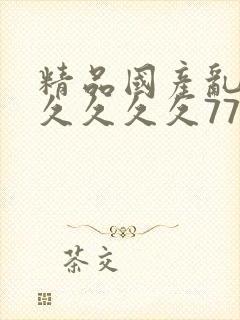 精品國產亂
久久久久77
茶交